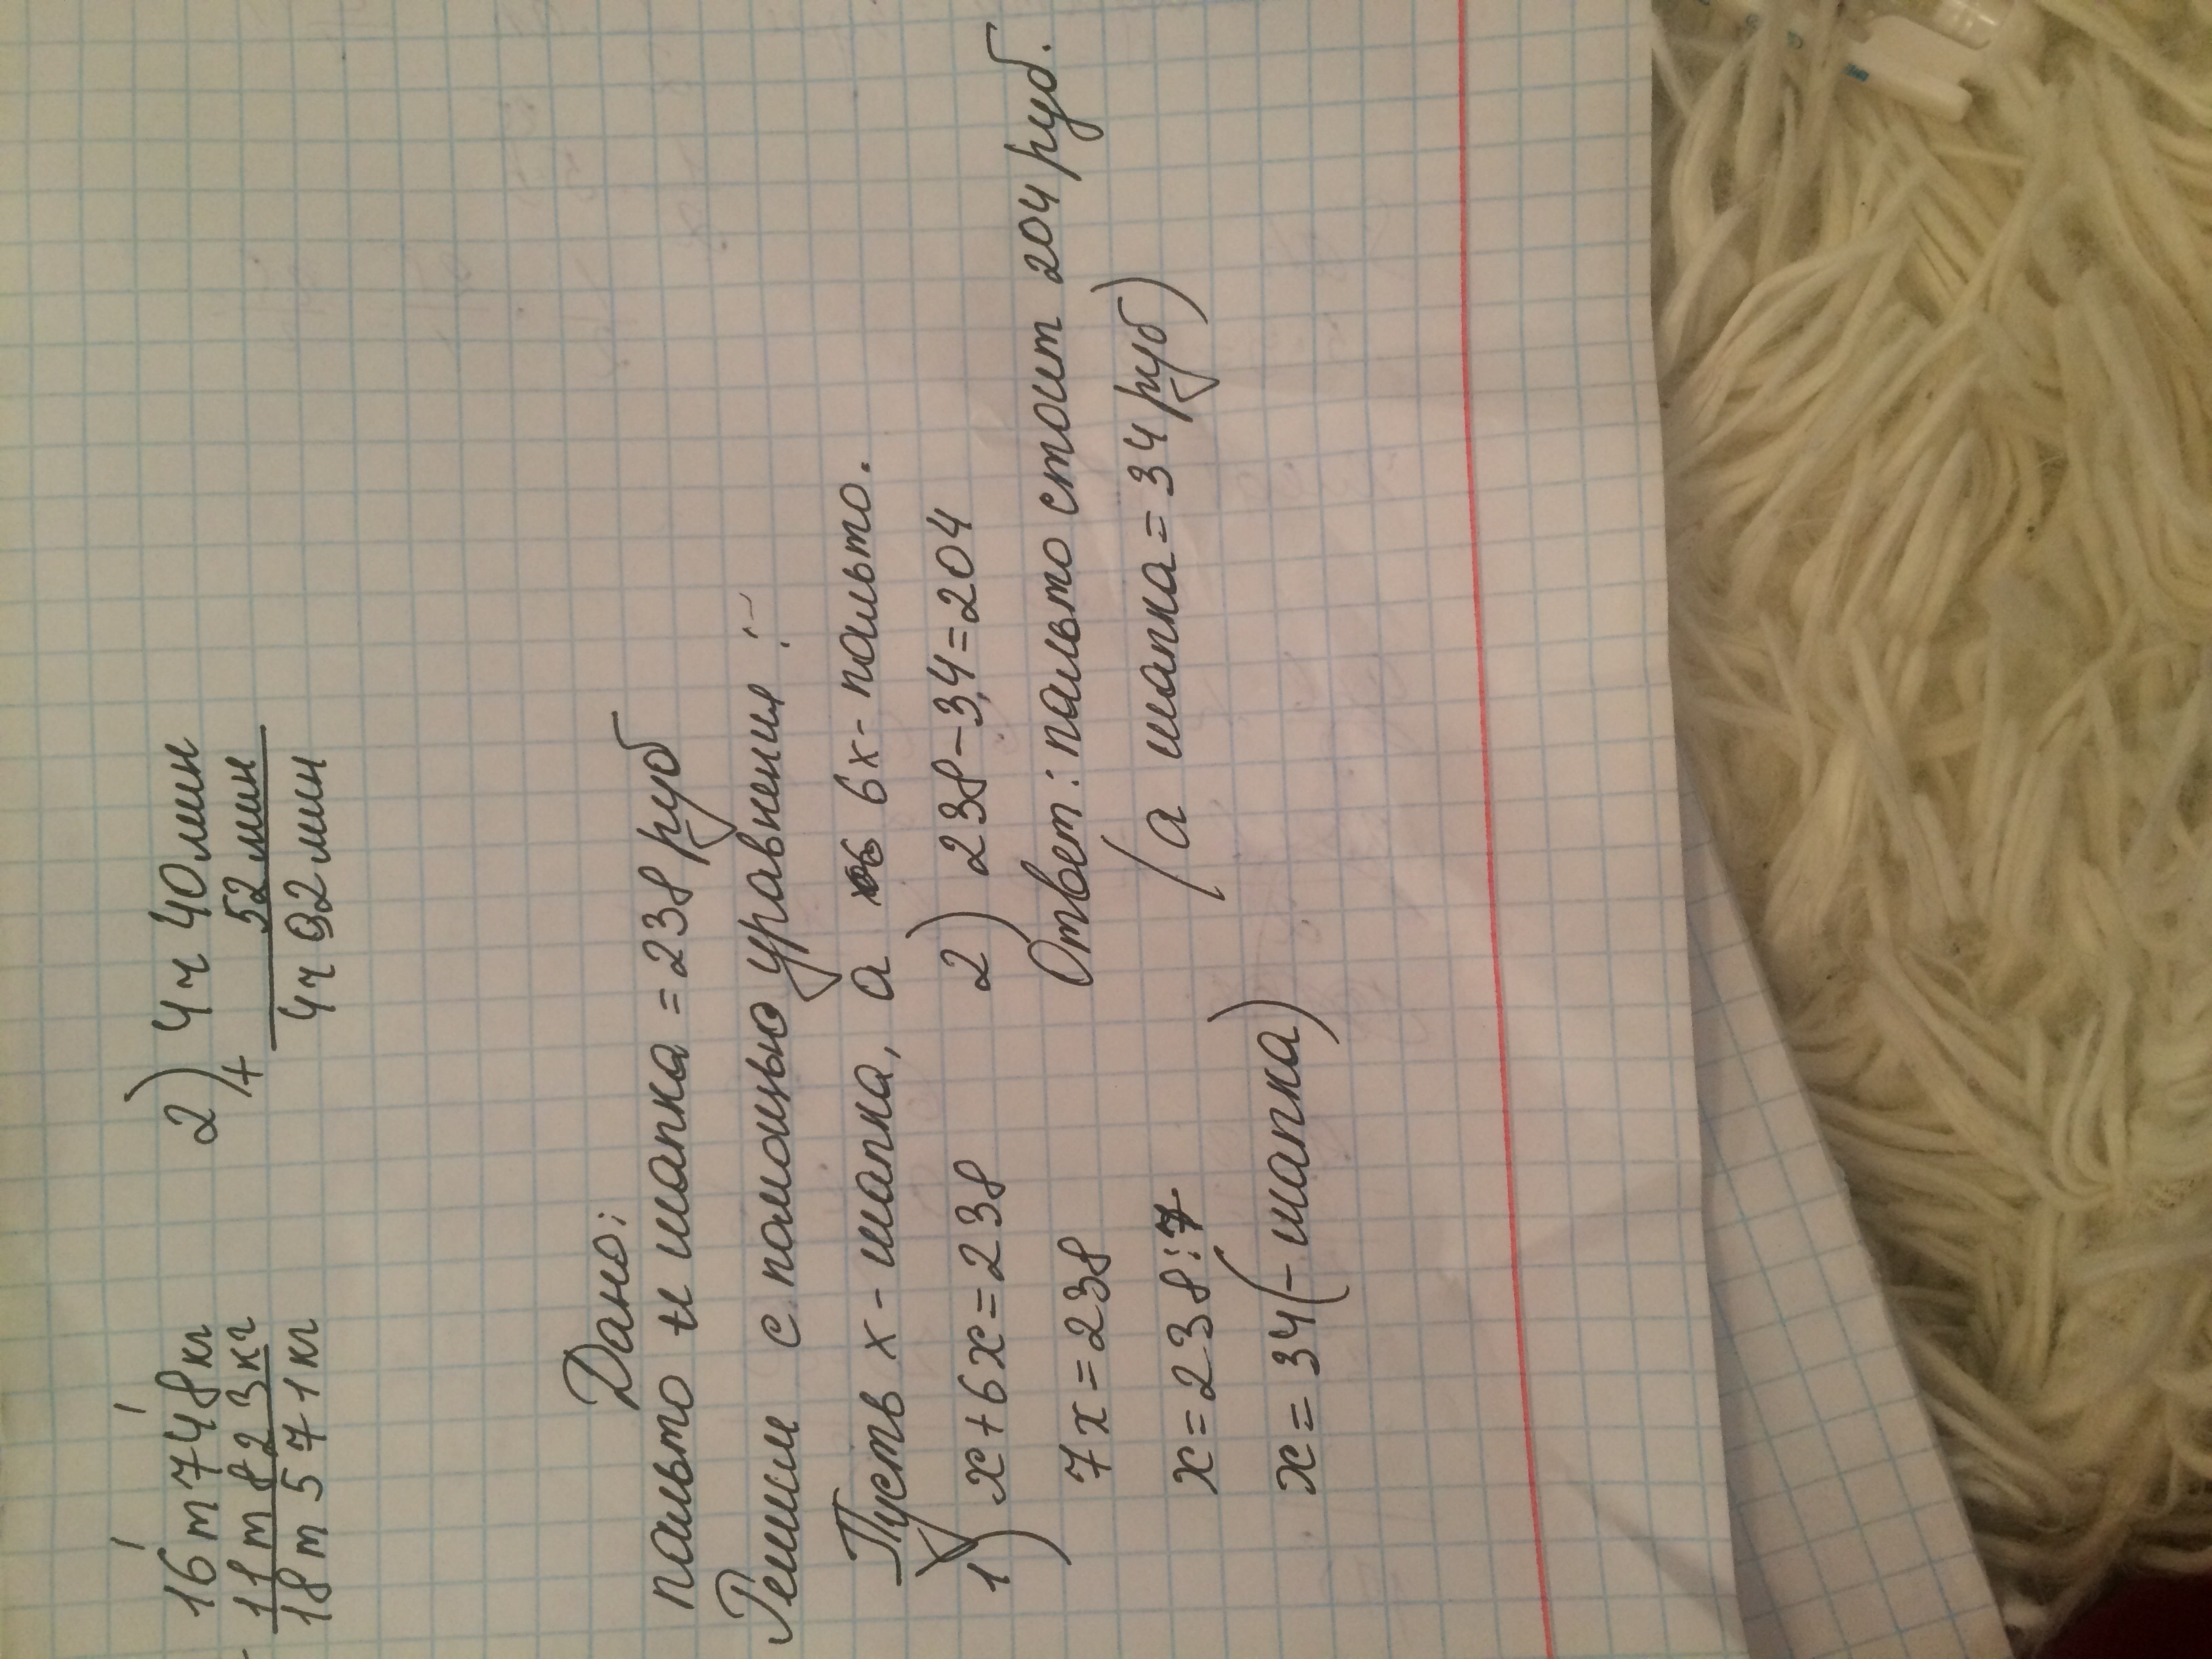 16 т 748 кг
11 т 823 кг
18 т 571 кг
2) 4 ч 40 мин
+ 52 мин
4 ч 92 мин
Дано:
пальто и шапка = 238 руб
Решим с помощью уравнения :-
Пусть х - шапка, а 6х - пальто.
1) х + 6х = 238
7х = 238
х = 238 : 7
х = 34 (- шапка)
2) 238 - 34 = 204
Ответ : пальто стоит 204 руб.
(а шапка = 34 руб)